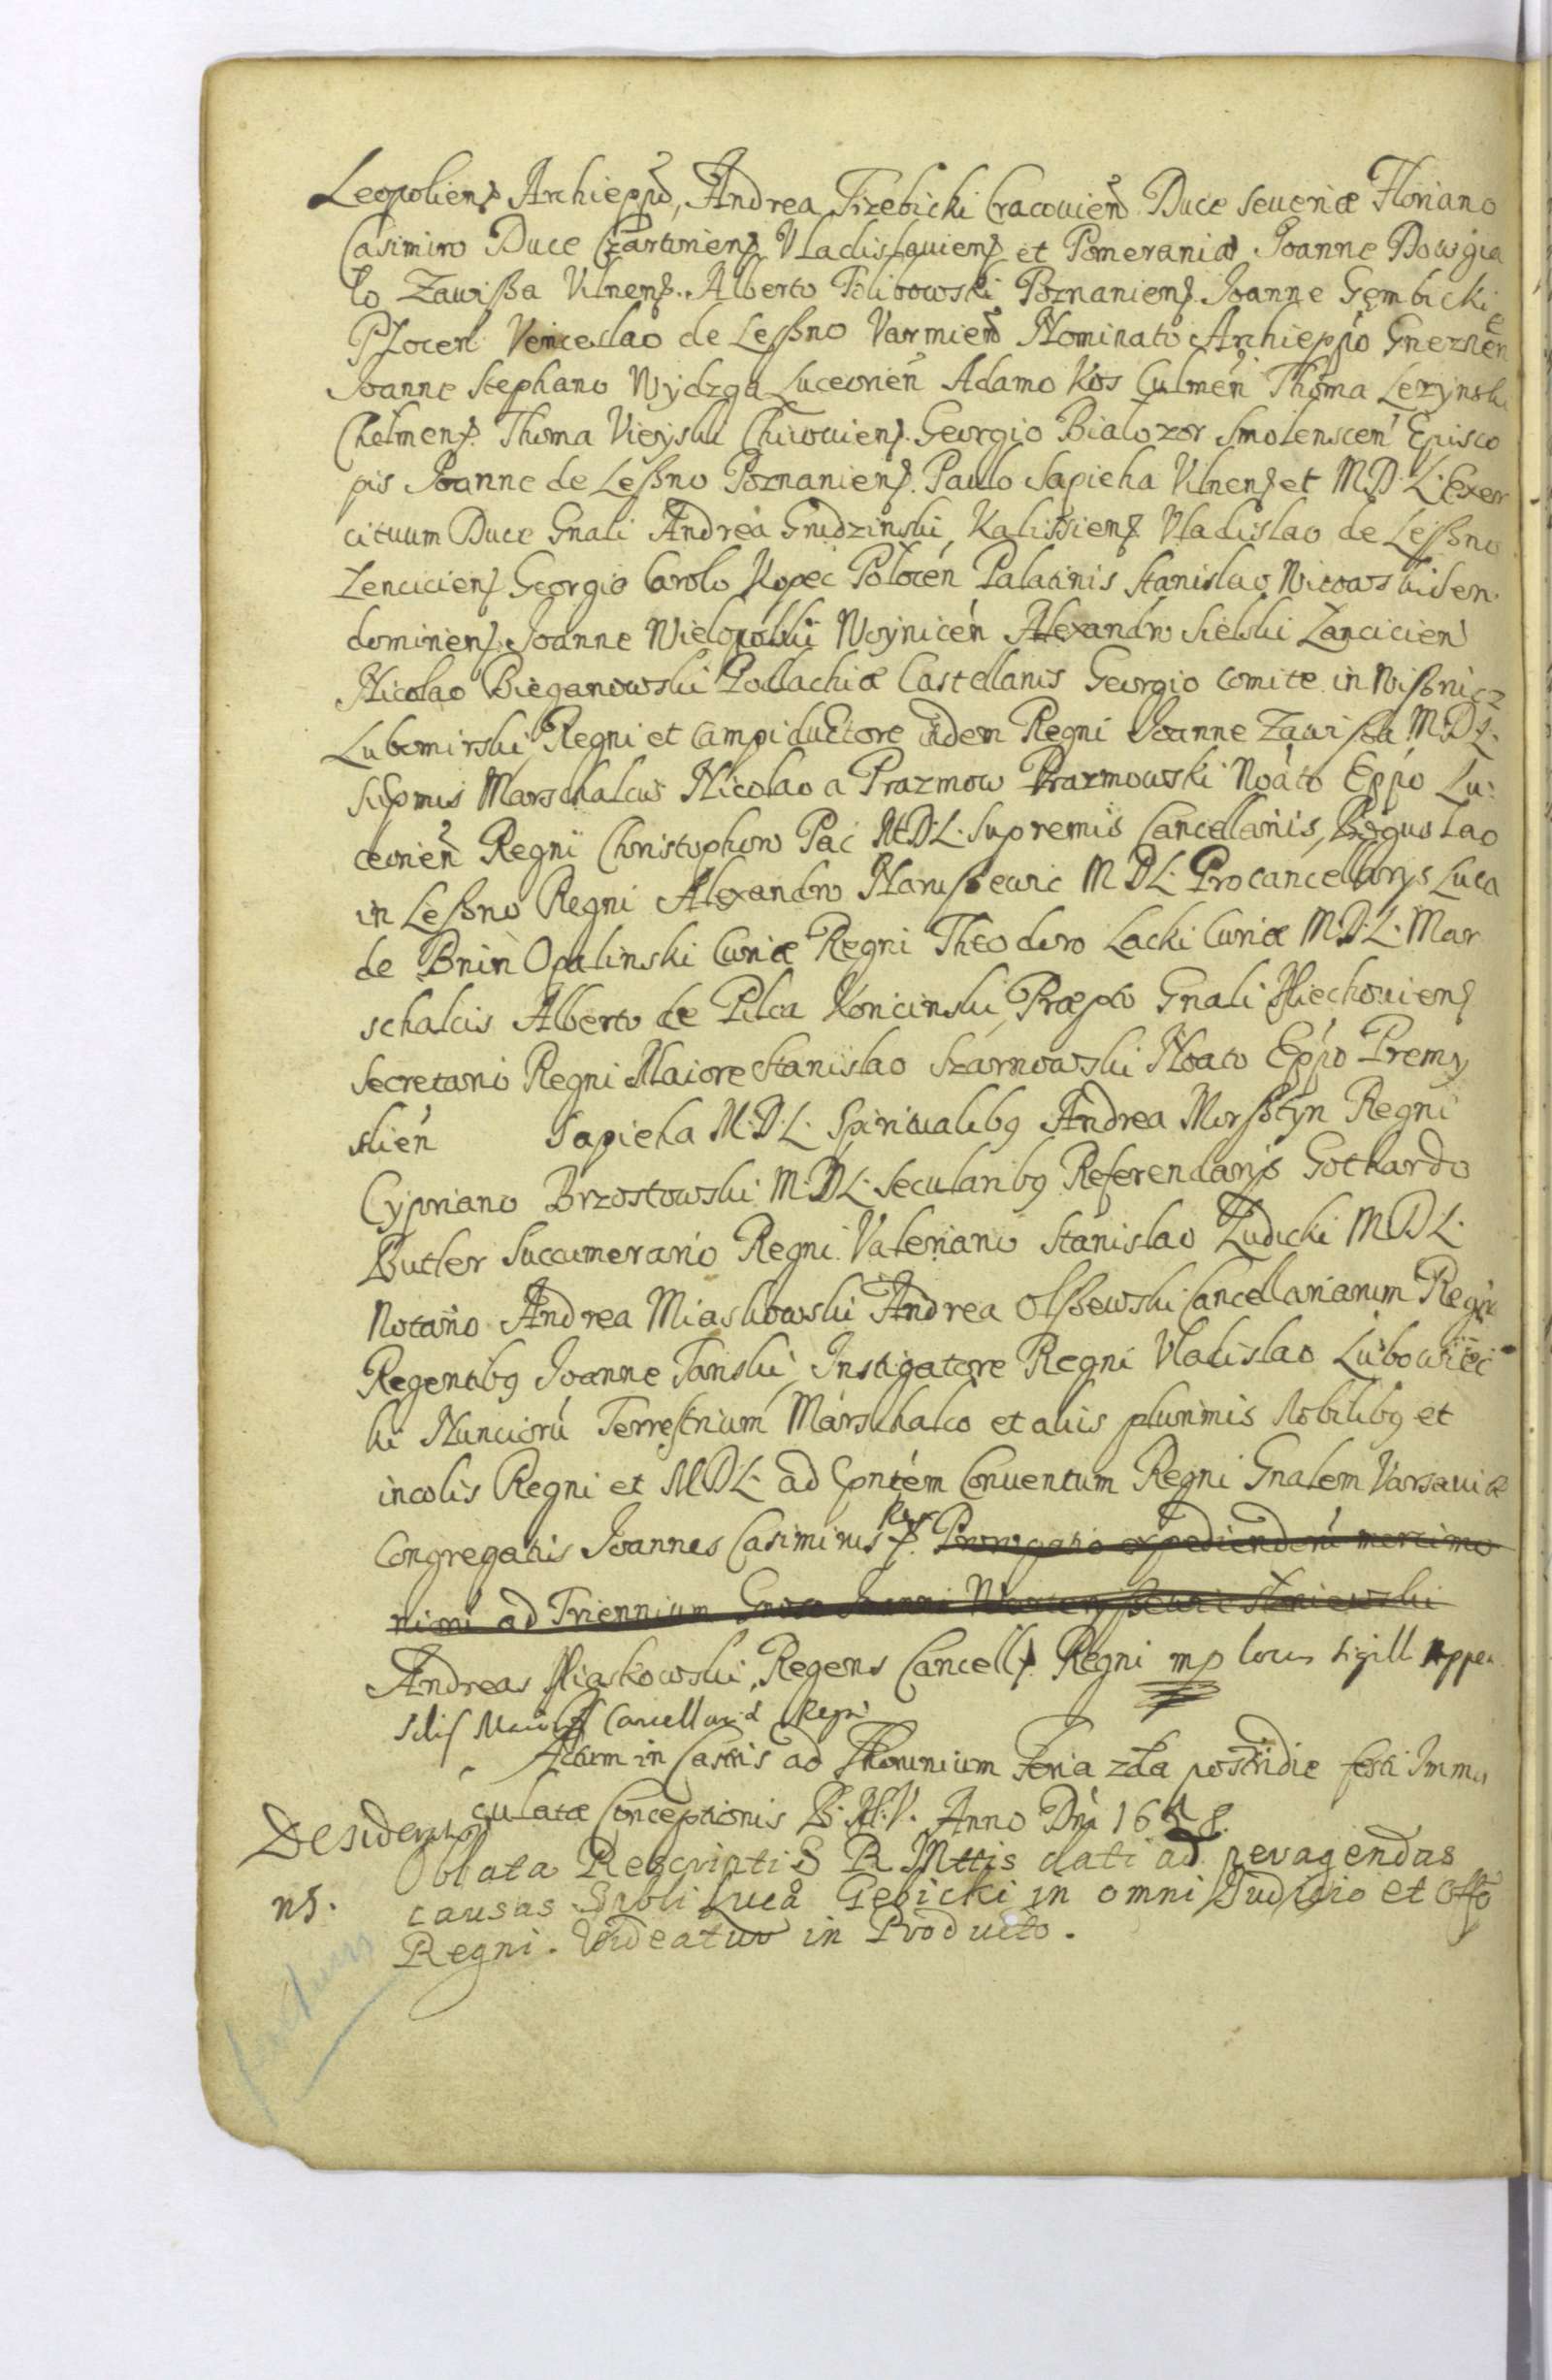 Leopoliens Archieppo, Andrea Trzebicki Cracovien Duce Severiæ Floriano
Casimiro Duce Czartorien Vladislaviens et Pomeraniæ Joanne Dowgia
lo Zawißa Vilnens. Alberto Tolibowski Poznaniens. Joanne Gembicki
Plocen Venceslao de Leßno Varmien Nominato Archieppo Gneznen
Joanne Stephano Wydzga Luceorien Adamo Kos Culmen Thoma Lezynski
Chelmens. Thoma Vieyski Chiioviens. Georgio Bialozor Smolenscen Episco
pis Joanne de Leßno Poznaniens. Paulo Sapieha Vilnens et M.D.L. Exer
cituum Duce Gnali Andrea Grudzinski Kalissiens Vladislao de Leßno
Lenciciens Georgio Carolo Kopec Polocen Palatinis Stanislao Witowski Sen
dominiens Joanne Wielopolski Woynicen Alexandro Sielski Lancicien
Nicolao Bieganowski Podlachiæ Castellanis Georgio Comite in Wißnicz
Lubomirski Regni et Campiductore eidem Regni Joanne Zawißa M.D.L.
Supmis Marschalcis Nicolao a Prazmow Prazmowski Noato Eppo Lu:
ceorien Regni Christophoro Pac M.D.L. Supremis Cancellariis, Boguslao
in Leßno Regni Alexandro Narußewic M.D.L. Procancellarys Luca
de Bnin Opalinski Curiæ Regni Theodoro Lacki Curiæ M.D.L. Mar
schalcis Alberto de Pilca Koricinski, Præpto Gnali Miechoviens
Secretario Regni Maiore Stanislao Szarnowski Noato Eppo Premy
slien Sapieha M.D.L. Spiritualibq Andrea Morßtyn Regni
Cypriano Brzostowski M.D.L. Secularibq Referendarys Gothardo
Butler Succamerario Regni Valeriano Stanislao Ludicki M.D.L.
Notario Andrea Miaskowski Andrea Olßewski Cancellariarum Regni
Regentibq Joanne Tanski, Instigatore Regni Vladislao Lubowiec
ki Nunciorú Terrestrium Marschalco et aliis plurimis Nobilibq et
incolis Regni et M.D.L. ad pntem Conventum Regni Gnalem Varsaviæ
Congregatis Joannes Casimirus Rex. Prorogatio expediendorú mercimo
niorú ad Triennium Gnoso Joanni
Andreas Miaskowski, Regens Cancell. Regni mp locus sigill appen
silis Maioris Cancellariæ Regni
Actum in Castris ad Thorunium Feria 2da postridie festi Imma
culatæ Conceptionis B.M.V. Anno Dni 1658.
Desiderat
Oblata Rescripti S R Mttis dati ad peragendas
ns.
causas Gnobli Luca Gebicki in omni Judicio et Offo
Regni. Videatur in Producto.